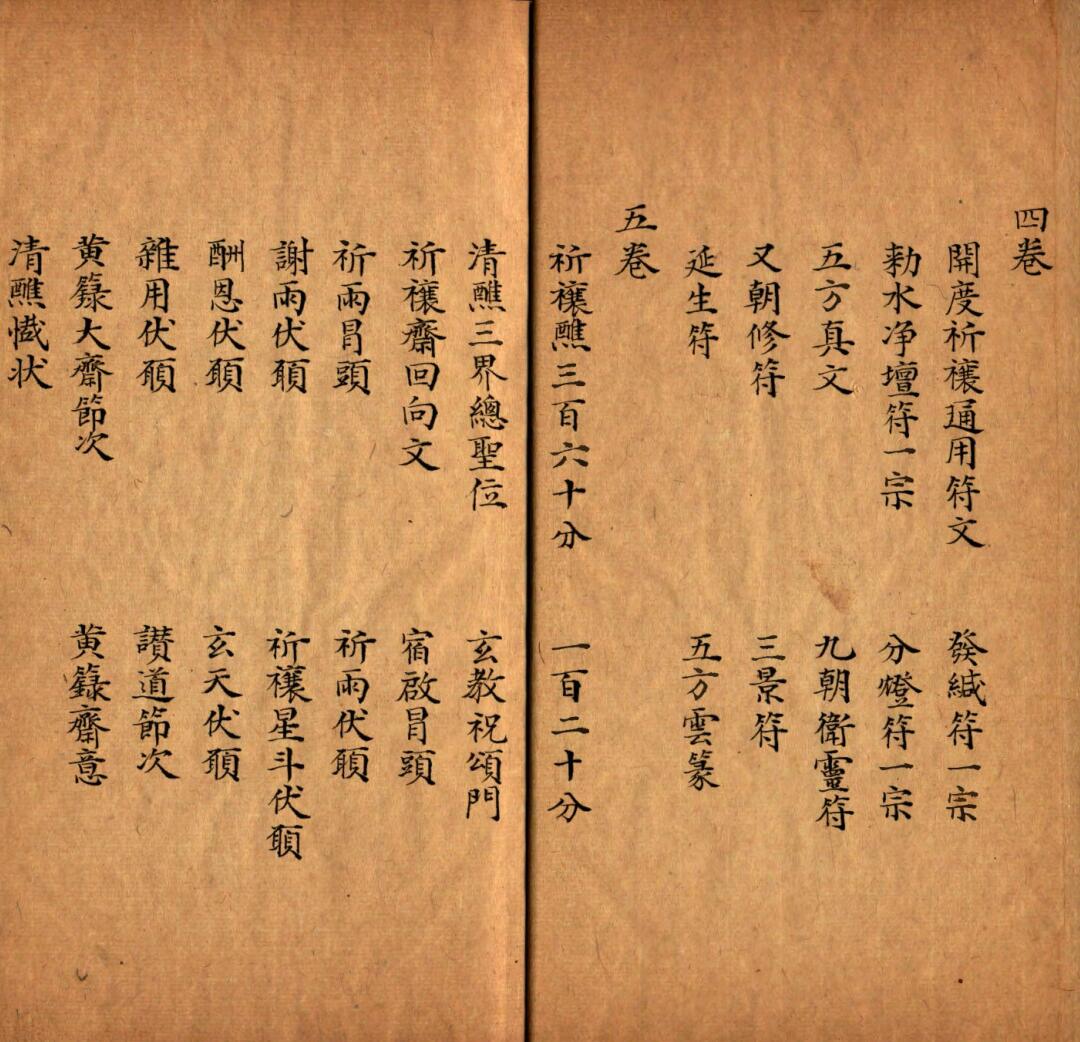 四卷
開度祈禳通用符文 發緘符一宗
勑水净壇符一宗 分燈符一宗
五方真文 九朝衛靈符
又朝修符 三景符
延生符 五方雲篆
五卷
祈禳醮三百六十分 一百二十分
清醮三界總聖位 玄教祝頌門
祈禳齋回向文 宿啟冒頭
祈雨冒頭 祈雨伏願
謝雨伏願 祈禳星斗伏願
酬恩伏願 玄天伏願
雜用伏願 讃道節次
黄籙大齋節次 黄籙齋意
清醮懺状